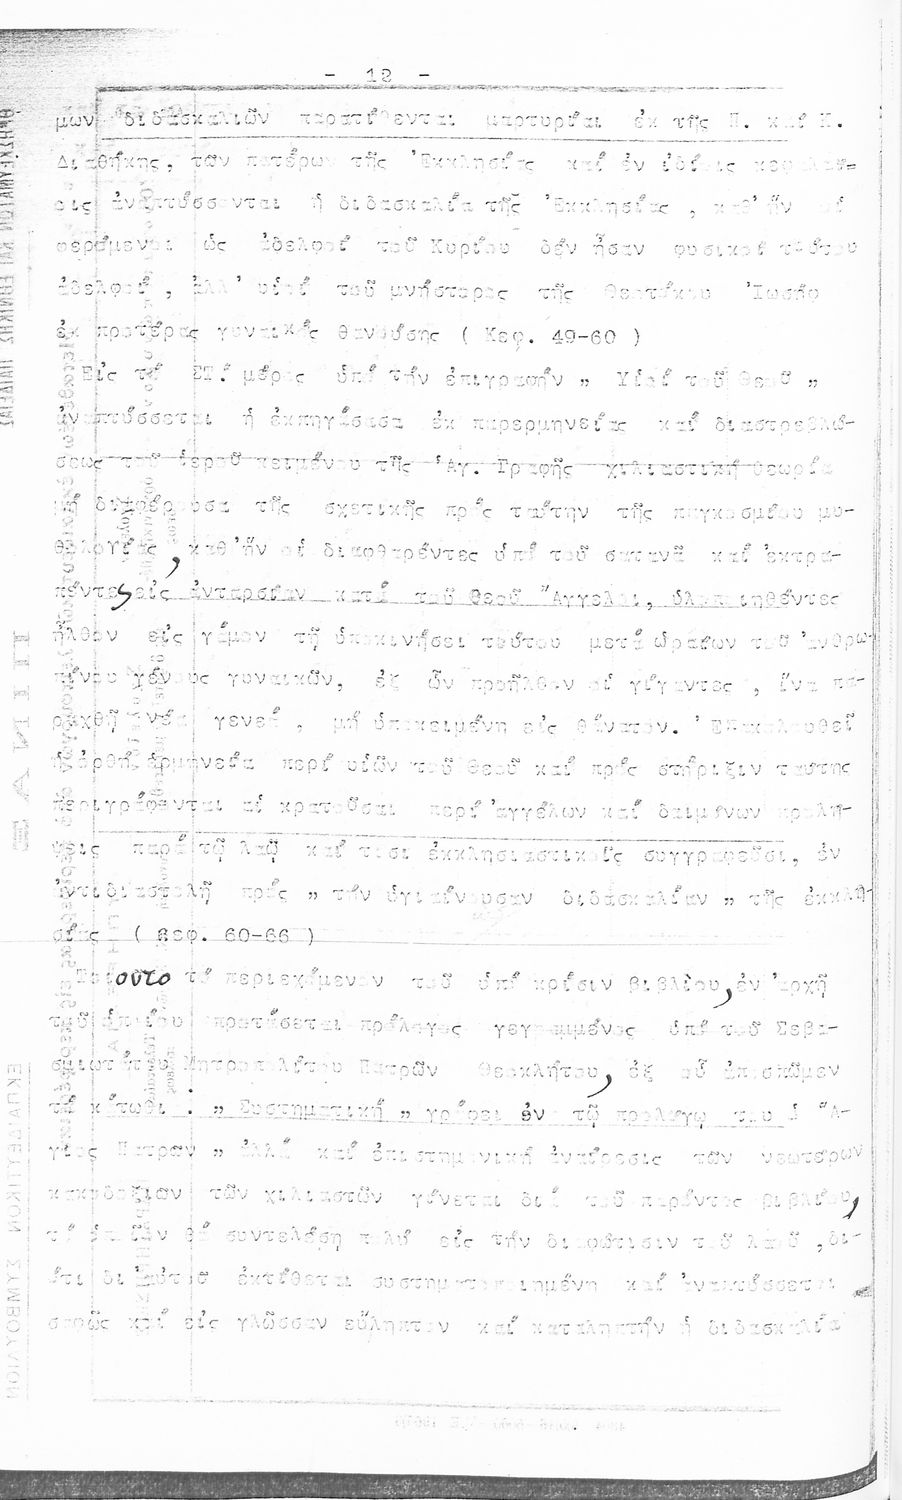 - 12 -
μων διδασκαλιῶν παρατίθενται μαρτυρίαι ἐκ τῆς Π. καί Κ.
Διαθήκης, τῶν πατέρων τῆς Ἐκκλησίας καί ἐν ἰδίοις κεφαλαί-
οις ἀναπτύσσονται ἡ διδασκαλία τῆς Ἐκκλησίας , καθ' ἥν οἱ
φερόμενοι ὡς ἀδελφοί τοῦ Κυρίου δέν ἦσαν φυσικοί τούτου
ἀδελφοί , ἀλλ' υἱοί τοῦ μνήστορος τῆς Θεοτόκου Ἰωσήφ
ἐκ προτέρας γυναικός θανούσης ( Κεφ. 49-60 )
Εἰς τό ΣΤ.' μέρος ὑπό τήν ἐπιγραφήν „ Υἱοί τοῦ Θεοῦ „
ἀναπτύσσεται ἡ ἐκπηγάσασα ἐκ παρερμηνείας καί διαστρεβλώ-
σεως τοῦ ἱεροῦ κειμένου τῆς Ἁγ. Γραφῆς χιλιαστική θεωρία
μή διαφέρουσα τῆς σχετικῆς πρός ταύτην τῆς παγκοσμίου μυ-
θολογίας , καθ' ἥν οἱ διαφθαρέντες ὑπό τοῦ σατανᾶ καί ἐκτρα-
πέντες εἰς ἀνταρσίαν κατά τοῦ Θεοῦ Ἄγγελοι, ὑλοποιηθέντες
ἦλθον εἰς γάμον τῇ ὑποκινήσει τούτου μετά ὡραίων τοῦ ἀνθρω-
πίνου γένους γυναικῶν, ἐξ ὧν προῆλθον οἱ γίγαντες , ἵνα πα-
ραχθῇ νέα γενεά , μή ὑποκειμένη εἰς θάνατον. Ἐπακολουθεῖ
ἡ ὀρθή ἑρμηνεία περί υἱῶν τοῦ Θεοῦ καί πρός στήριξιν ταύτης
περιγράφονται αἱ κρατοῦσαι περί ἀγγέλων καί δαιμόνων προλή-
ψεις παρά τῷ λαῷ καί τισι ἐκκλησιαστικοῖς συγγραφεῦσι, ἐν
ἀντιδιαστολῇ πρός „ τήν ὑγιαίνουσαν διδασκαλίαν „ τῆς ἐκκλη-
σίας ( Κεφ. 60-66 )
Τοιοῦτο τό περιεχόμενον τοῦ ὑπό κρίσιν βιβλίου, ἐν ἀρχῇ
τοῦ ὁποίου προτάσεται πρόλογος γεγραμμένος ὑπό τοῦ Σεβα-
σμιωτάτου Μητροπολίτου Πατρῶν Θεοκλήτου, ἐξ οὗ ἀποσπῶμεν
τά κάτωθι : „ Συστηματική „ γράφει ἐν τῷ προλόγῳ του ὁ Ἅ-
γιος Πατρῶν „ ἀλλά καί ἐπιστημονική ἀναίρεσις τῶν νεωτέρων
κακοδοξιῶν τῶν χιλιαστῶν γίνεται διά τοῦ παρόντος βιβλίου,
τό ὁποῖον θά συντελέσῃ πολύ εἰς τήν διαφώτισιν τοῦ λαοῦ , δι-
ότι δι' αὐτοῦ ἐκτίθεται συστηματοποιημένη καί ἀναπτύσσεται
σαφῶς καί εἰς γλῶσσαν εὔληπτον καί καταληπτήν ἡ διδασκαλία